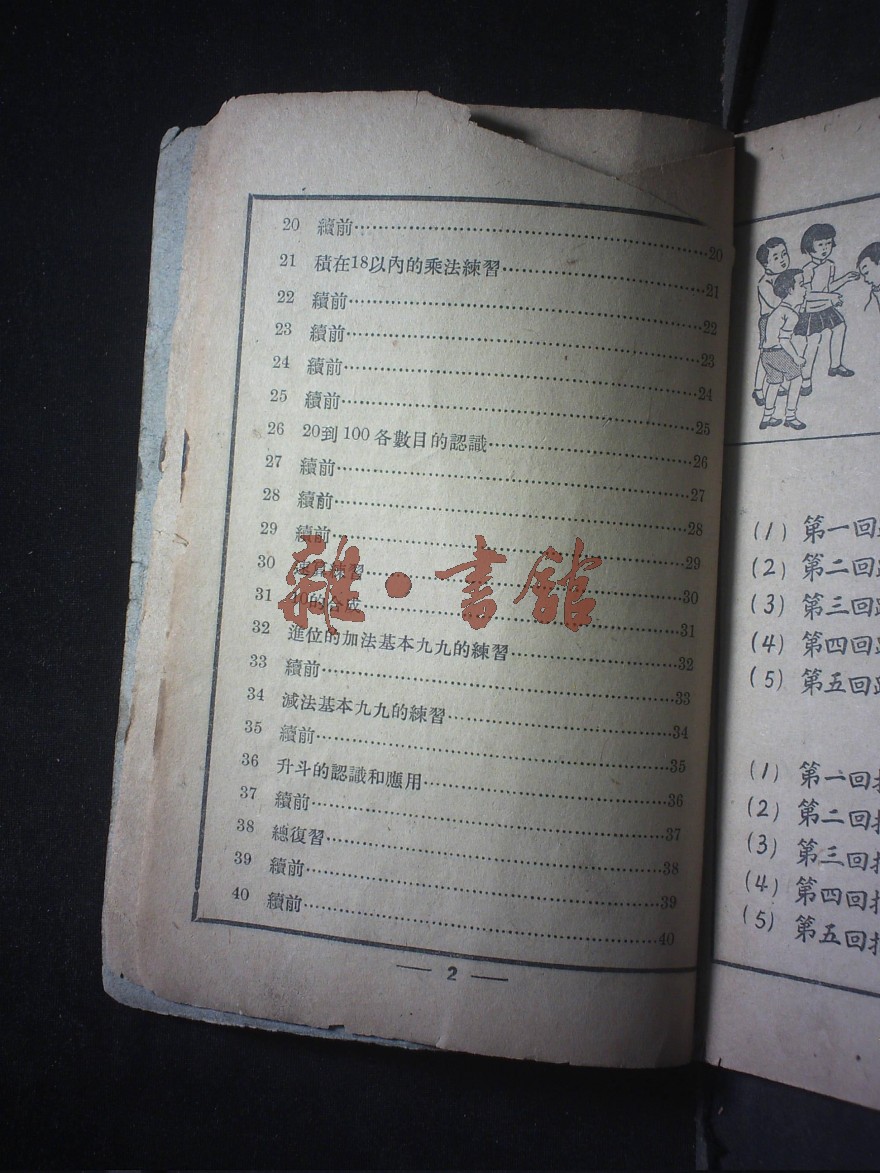 20 續前…………20
21 積在18以內的乘法練習…………21
22 續前…………22
23 續前…………23
24 續前…………24
25 續前…………25
26 20到100各數目的認識…………26
27 續前…………27
28 續前…………28
29 續前…………29
30 練習…………30
31 10的合成…………31
32 進位的加法基本九九的練習…………32
33 續前…………33
34 減法基本九九的練習…………34
35 續前…………35
36 升斗的認識和應用…………36
37 續前…………37
38 總復習…………38
39 續前…………39
40 續前…………40
— 2 —
雜·書館
(1) 第一回
(2) 第二回
(3) 第三回
(4) 第四回
(5) 第五回
(1) 第一回
(2) 第二回
(3) 第三回
(4) 第四回
(5) 第五回